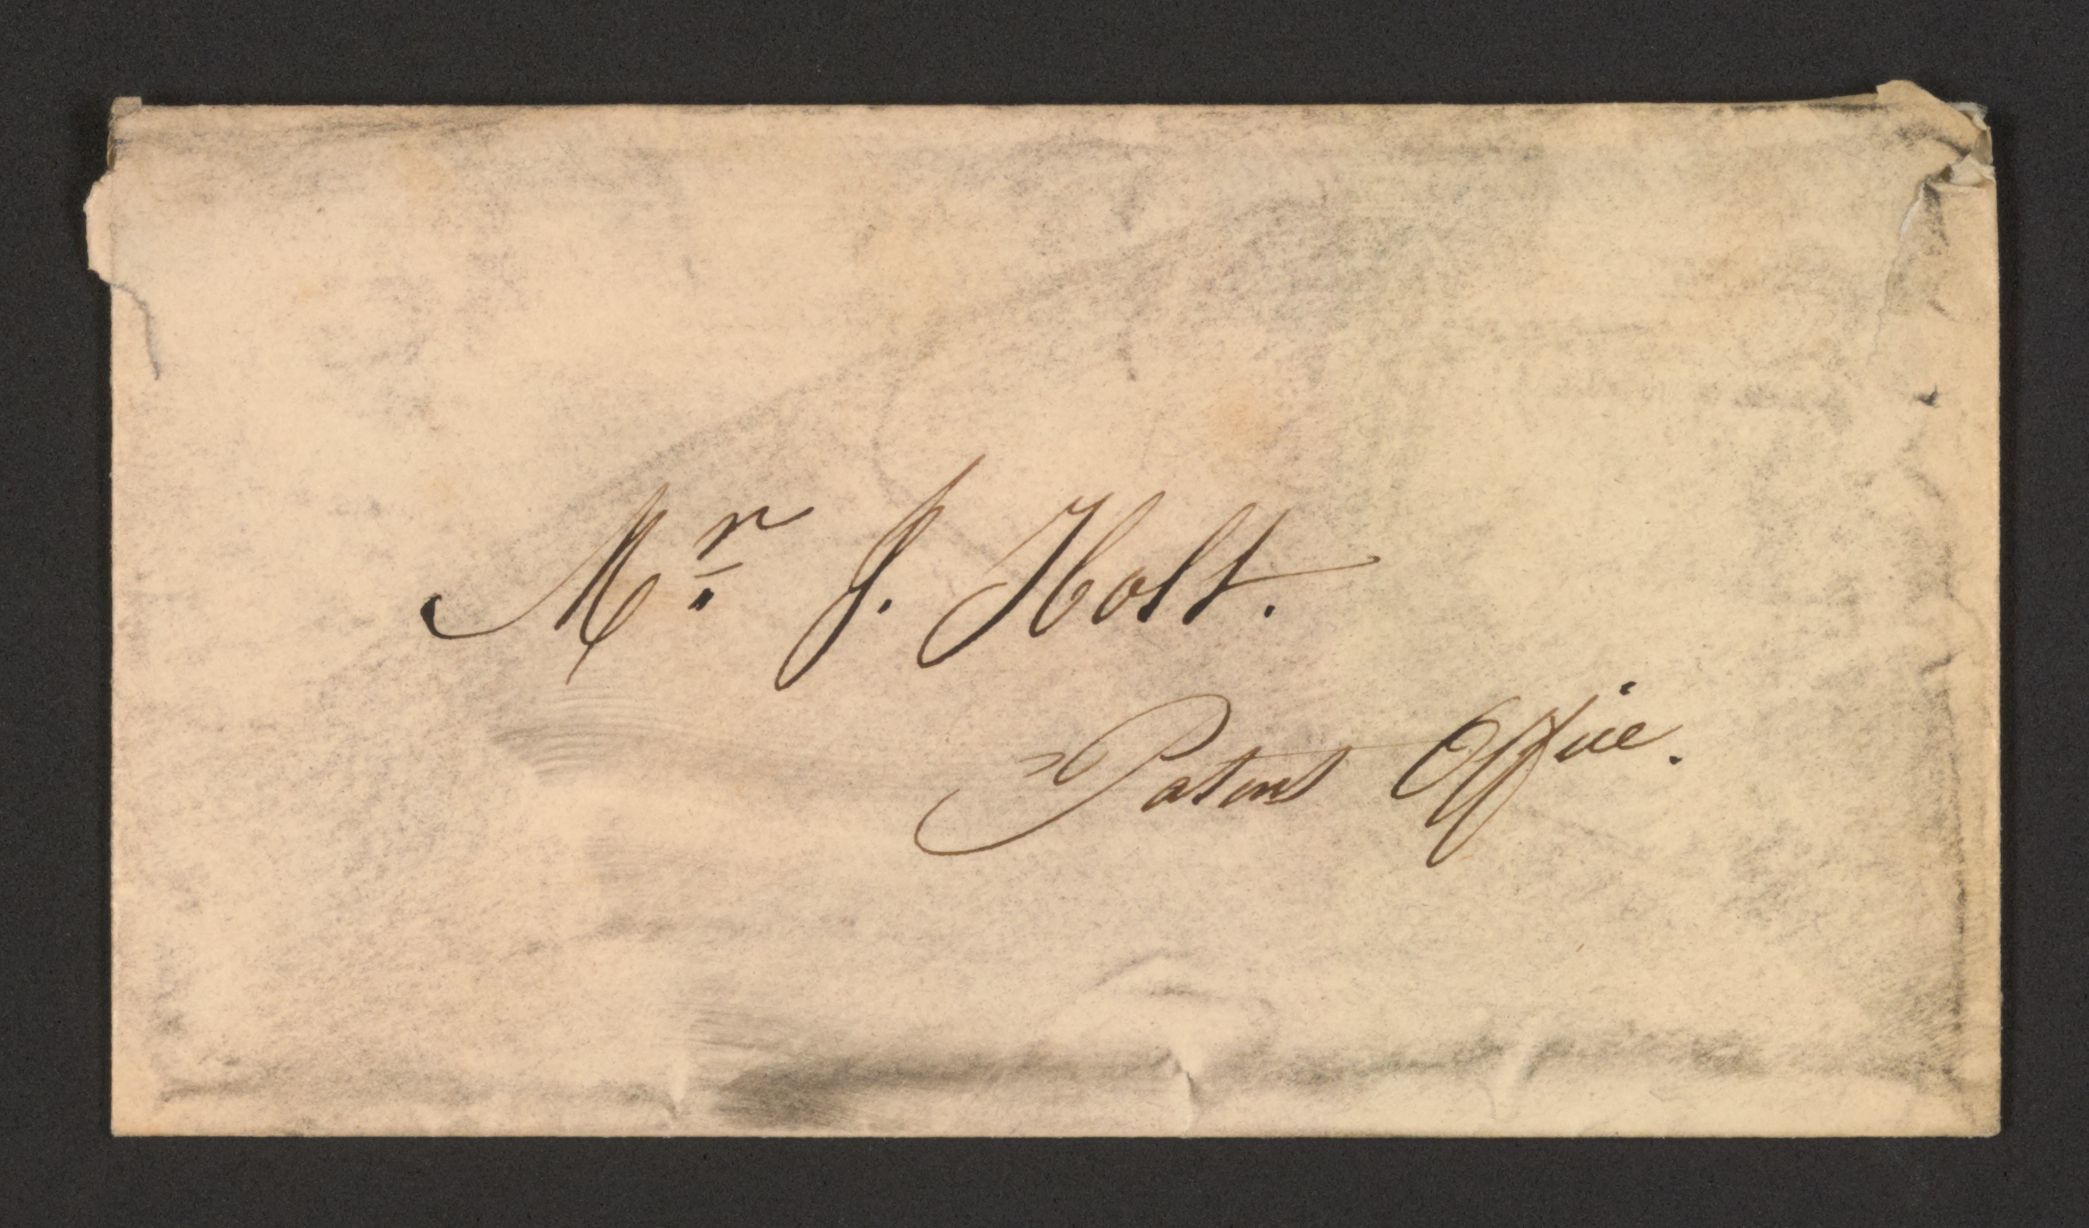 Mr. J. Holt.
Patent Office.